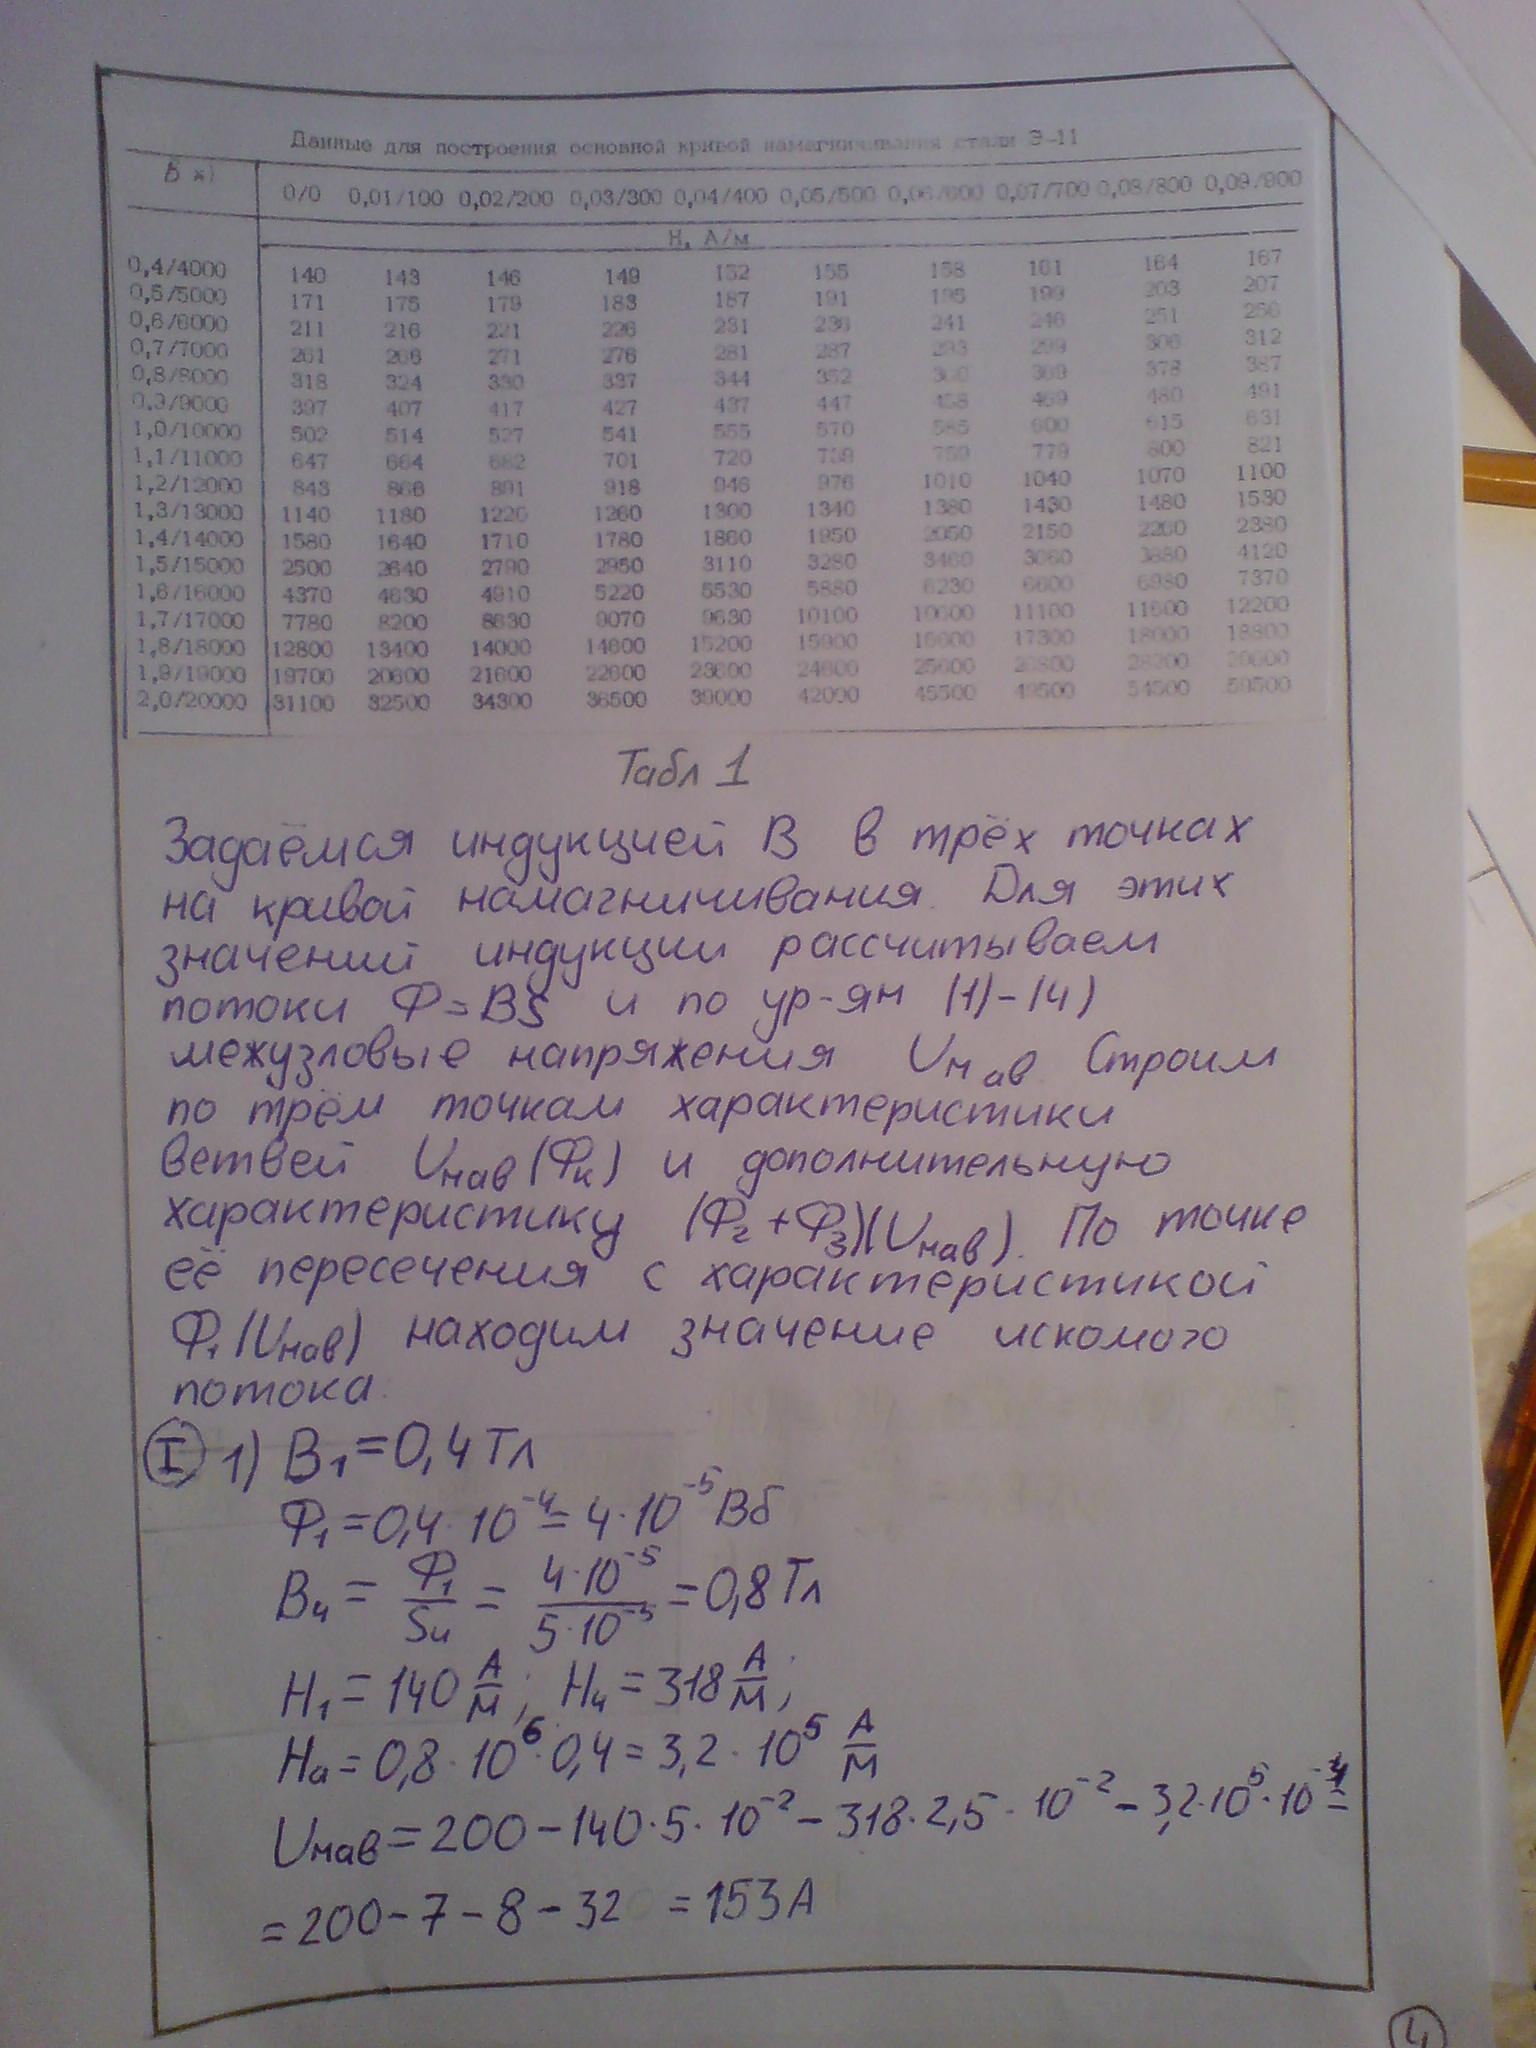 Данные для построения основной кривой намагничивания стали Э-11
В х) 0/0 0,01/100 0,02/200 0,03/300 0,04/400 0,05/500 0,06/600 0,07/700 0,08/800 0,09/900
Н, А/м
0,4/4000 140 143 146 149 152 155 158 161 164 167
0,5/5000 171 175 179 183 187 191 195 199 203 207
0,6/6000 211 216 221 226 231 236 241 246 251 256
0,7/7000 261 266 271 276 281 287 293 299 306 312
0,8/8000 318 324 330 337 344 352 360 369 378 387
0,9/9000 397 407 417 427 437 447 458 469 480 491
1,0/10000 502 514 527 541 555 570 585 600 615 631
1,1/11000 647 664 682 701 720 739 759 779 800 821
1,2/12000 843 866 891 918 946 976 1010 1040 1070 1100
1,3/13000 1140 1180 1220 1260 1300 1340 1380 1430 1480 1530
1,4/14000 1580 1640 1710 1780 1860 1950 2050 2150 2260 2380
1,5/15000 2500 2640 2790 2950 3110 3280 3460 3660 3880 4120
1,6/16000 4370 4630 4910 5220 5530 5880 6230 6600 6980 7370
1,7/17000 7780 8200 8630 9070 9630 10100 10600 11100 11600 12200
1,8/18000 12800 13400 14000 14600 15200 15900 16600 17300 18000 18800
1,9/19000 19700 20600 21600 22600 23600 24600 25600 26800 28200 29600
2,0/20000 31100 32500 34300 36500 39000 42000 45500 49500 54500 59500
Табл 1
Задаёмся индукцией В в трёх точках
на кривой намагничивания. Для этих
значений индукции рассчитываем
потоки Ф=BS и по ур-ям (1)-(4)
межузловые напряжения Uмав. Строим
по трём точкам характеристики
ветвей Uмав(Фк) и дополнительную
характеристику (Ф2+Ф3)(Uмав). По точке
её пересечения с характеристикой
Ф1(Uмав) находим значение искомого
потока.
I 1) В1=0,4 Тл
Ф1=0,4·10⁻⁴=4·10⁻⁵ Вб
В4 = Ф1/S4 = 4·10⁻⁵/5·10⁻⁵ = 0,8 Тл
Н1=140 А/М; Н4=318 А/М;
На=0,8·10⁶·0,4=3,2·10⁵ А/М
Uмав=200-140·5·10⁻²-318·2,5·10⁻²-3,2·10⁵·10⁻⁴=
=200-7-8-32 =153А
4